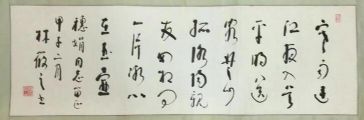 寒雨連
江夜入吴
平明送
客楚山
孤洛陽親
友如相问
一片冰心
在玉壶
穗娟同志留正
甲子二月
林筱之书